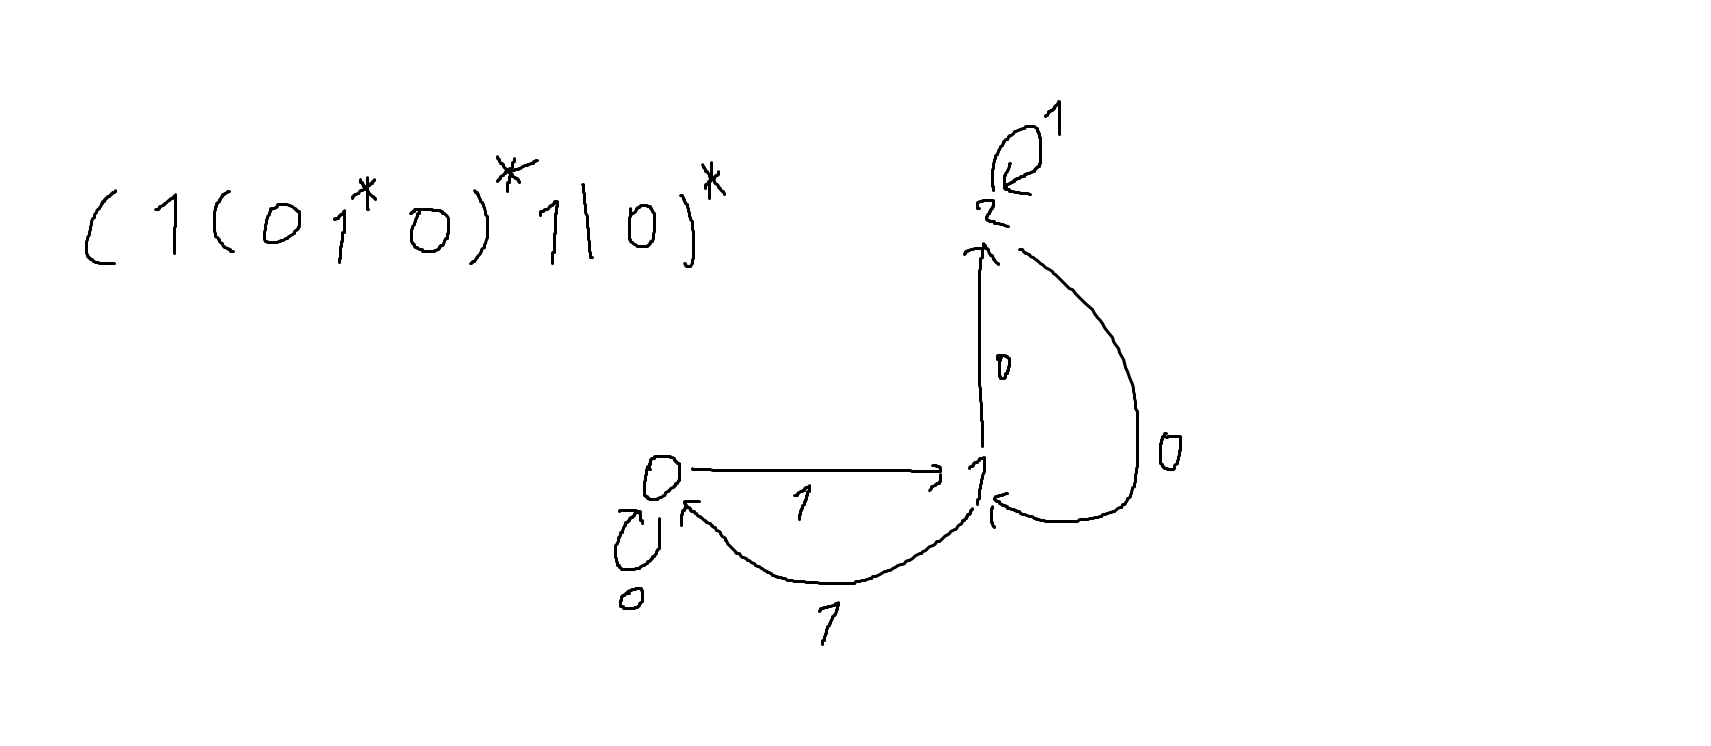 (1(01*0)*1|0)*
1
2
0
0
0
1
1
0
1